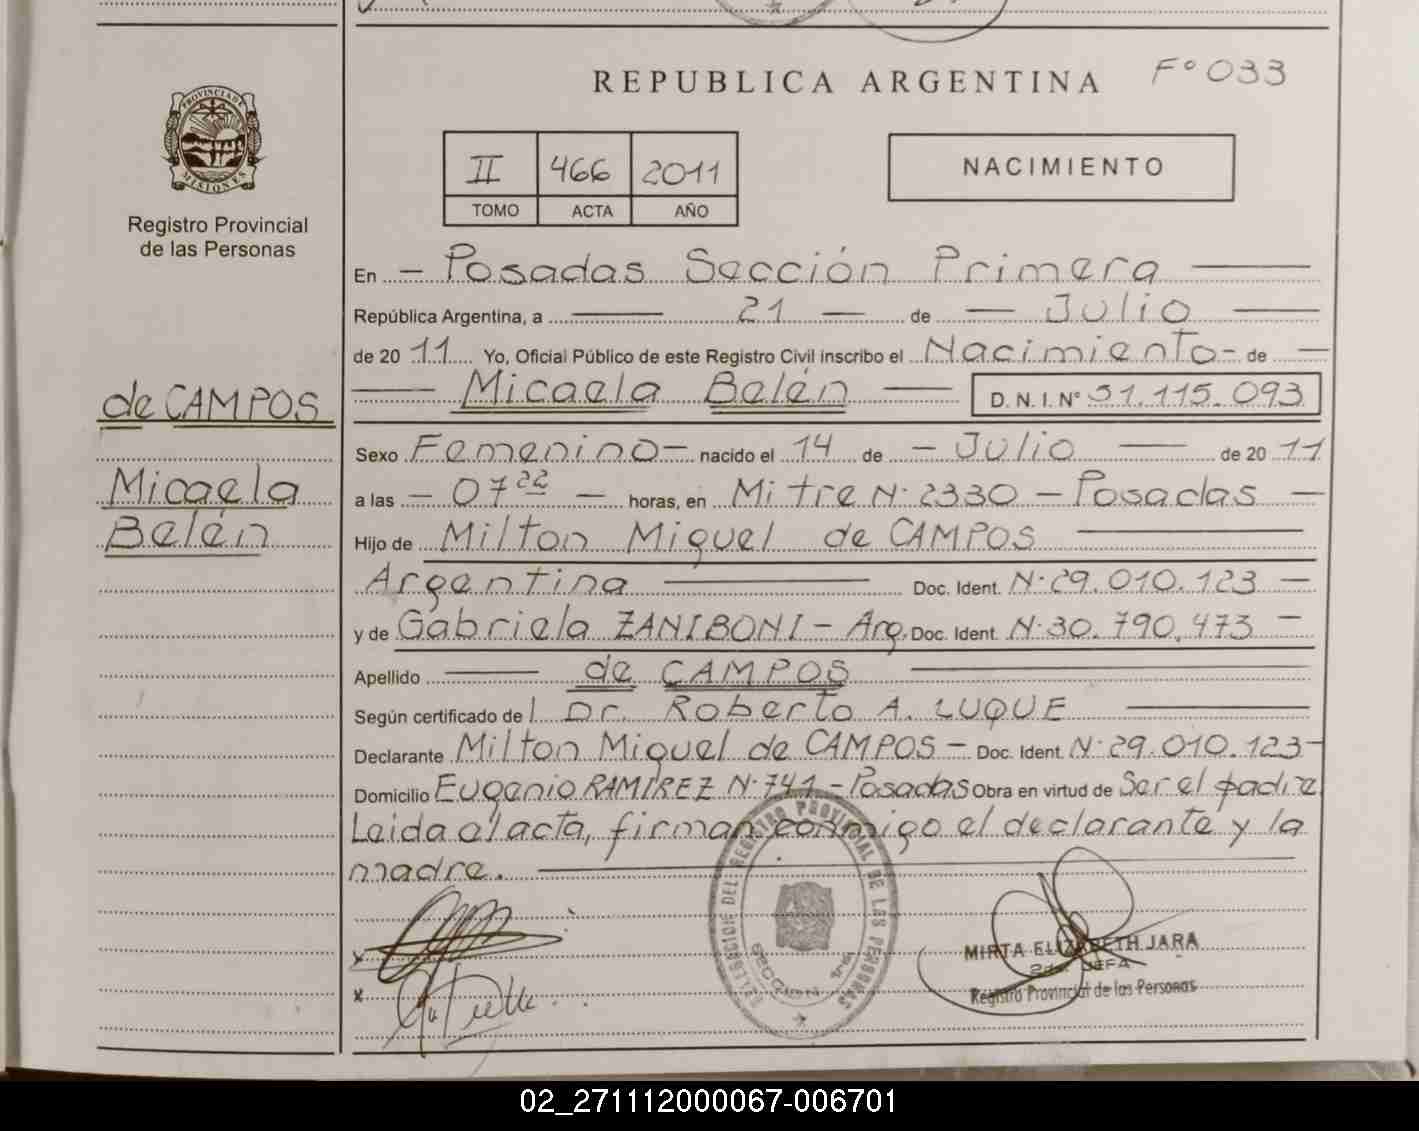 REPUBLICA ARGENTINA Fº 033
PROVINCIA DE MISIONES
Registro Provincial
de las Personas
II 466 2011
TOMO ACTA AÑO
NACIMIENTO
de CAMPOS
Micaela
Belén
En – Posadas Sección Primera
República Argentina, a 21 de Julio
de 20 11 Yo, Oficial Público de este Registro Civil inscribo el Nacimiento- de
Micaela Belén D. N. I. Nº 51.115.093
Sexo Femenino – nacido el 14 de – Julio de 20 11
a las – 07 22 – horas, en Mitre N· 2330 – Posadas –
Hijo de Milton Miguel de CAMPOS
Argentina Doc. Ident. N· 29.010.123 –
y de Gabriela ZANIBONI – Arg. Doc. Ident. N· 30.790.473 –
Apellido de CAMPOS
Según certificado del Dr. Roberto A. LUQUE
Declarante Milton Miguel de CAMPOS – Doc. Ident. N· 29.010.123 –
Domicilio Eugenio RAMIREZ N· 741 – Posadas Obra en virtud de Ser el padre
Leida el acta, firman conmigo el declarante y la
madre.
DELEGACION DEL REGISTRO PROVINCIAL DE LAS PERSONAS
SECCION 1ra
MIRTA ELIZABETH JARA
2da JEFA
Registro Provincial de las Personas
02_271112000067-006701